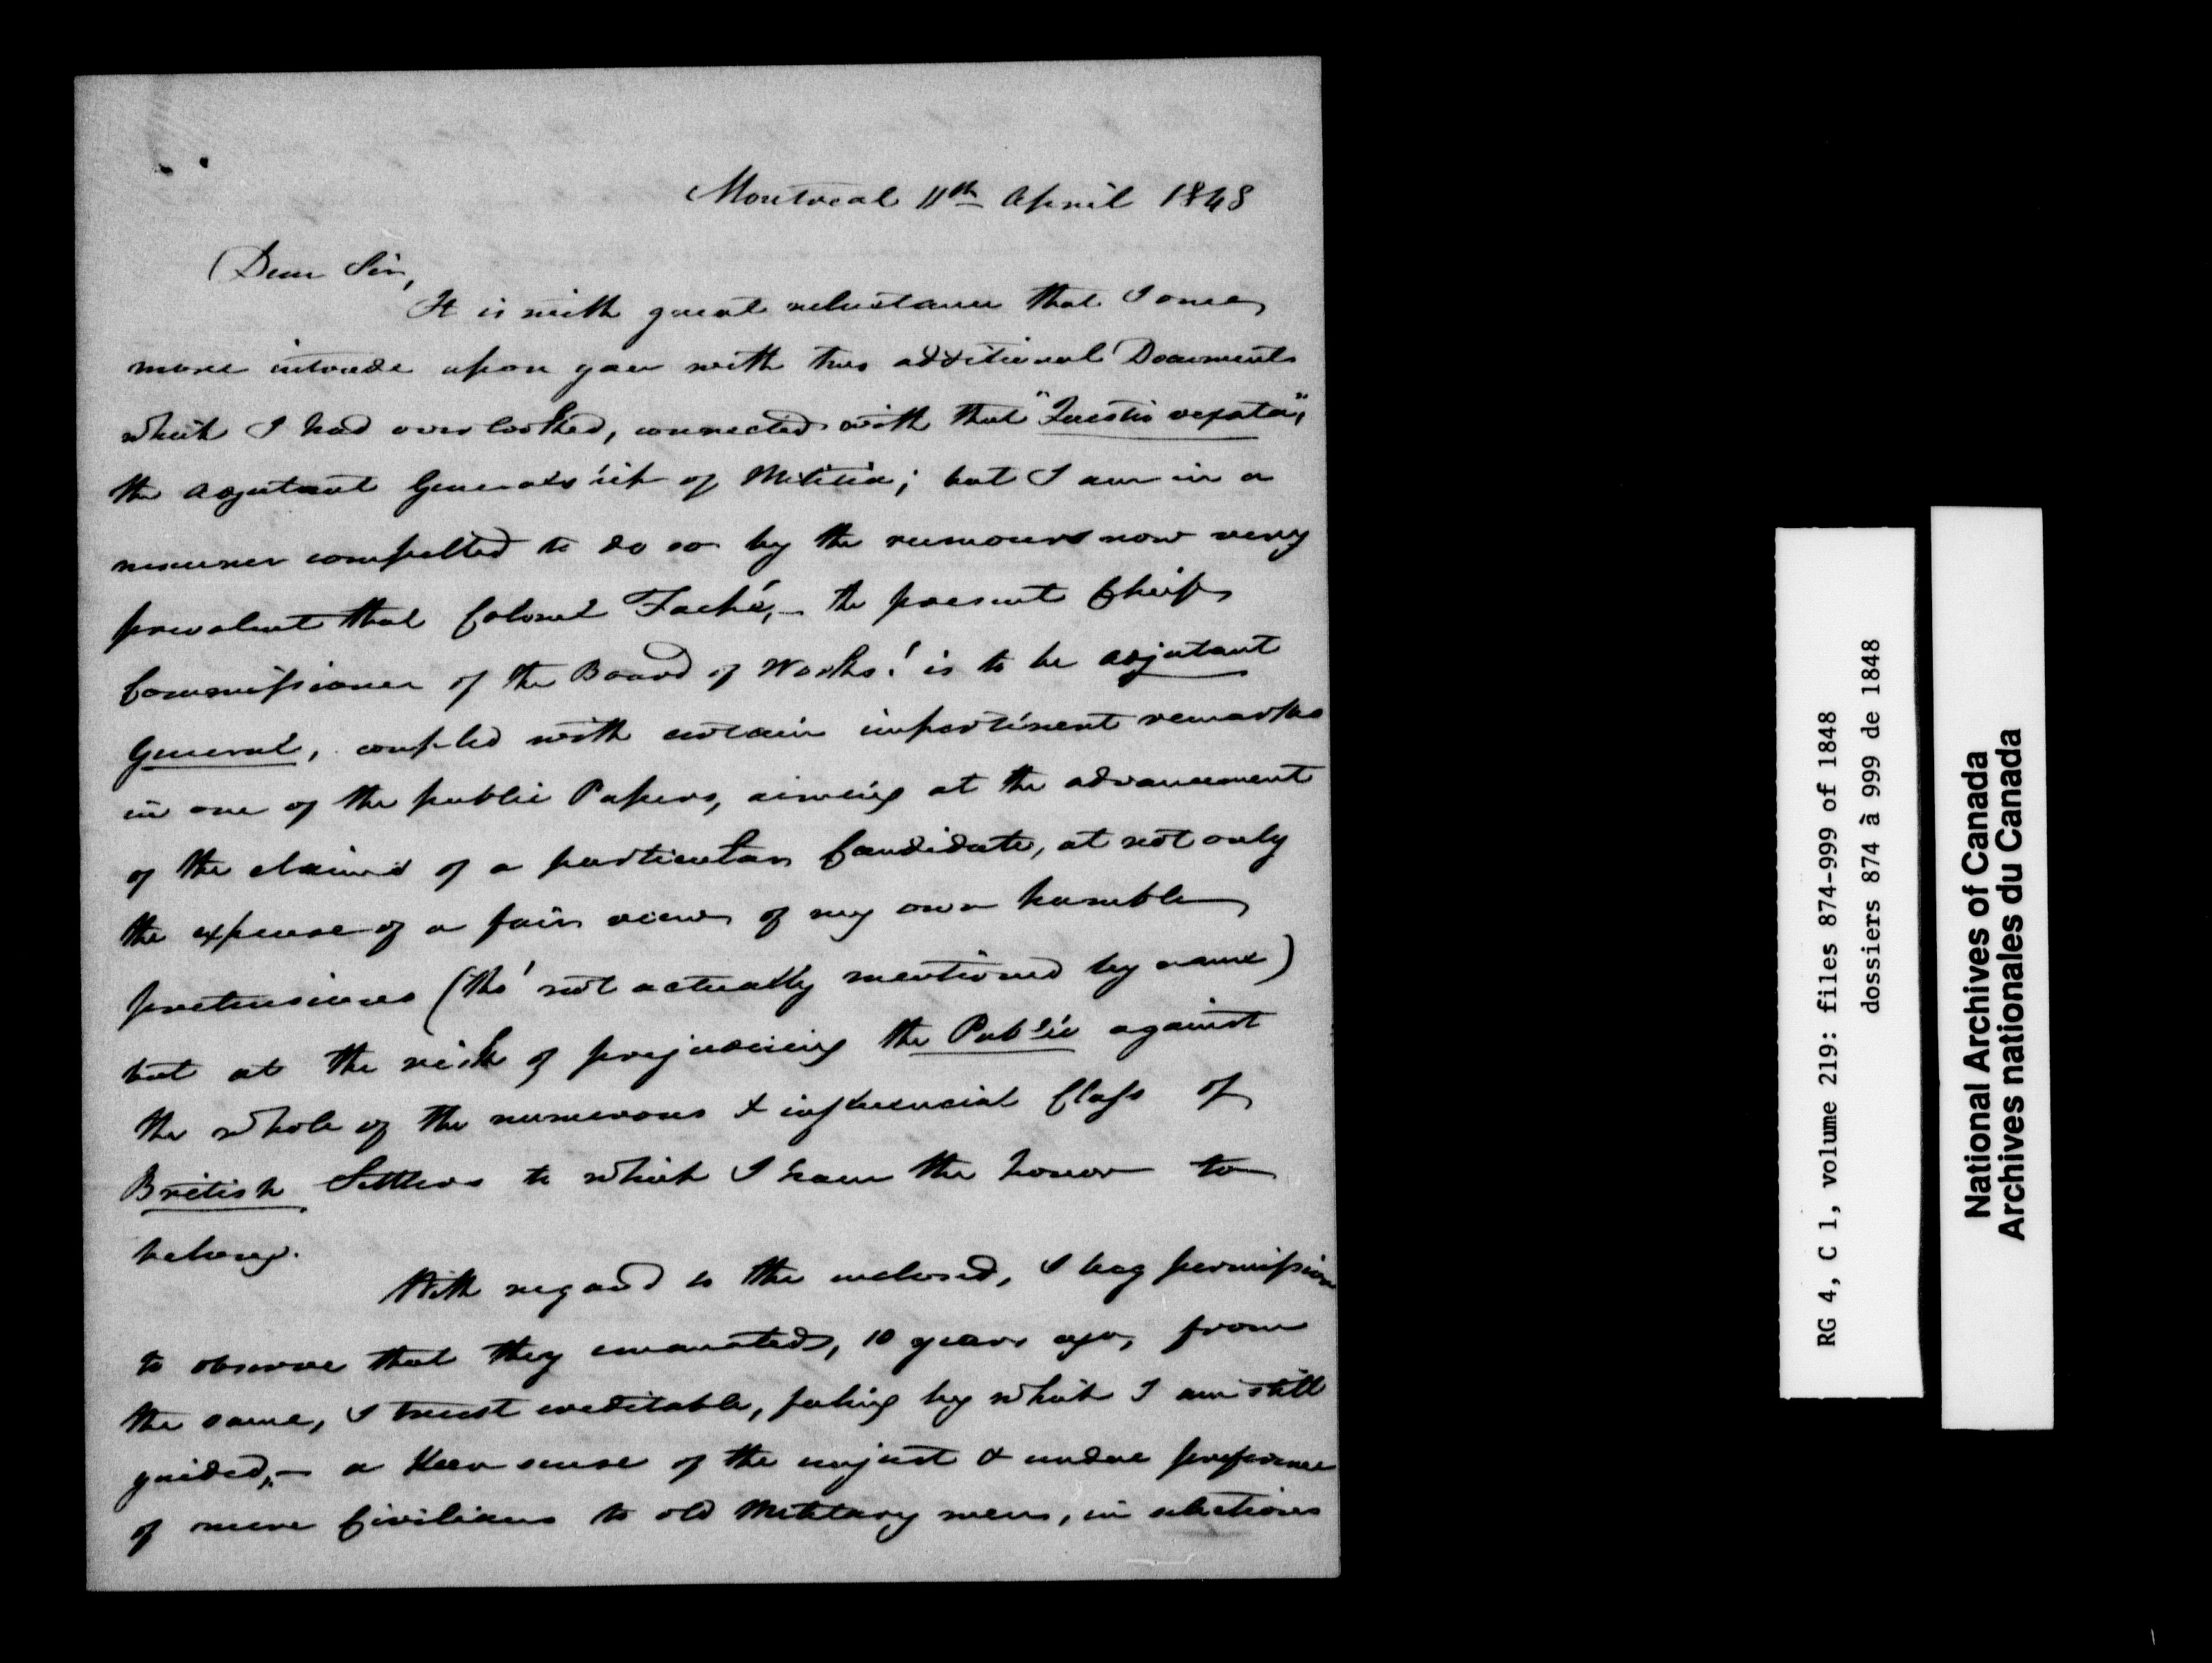 Montreal 11th April 1848
Dear Sir,
It is with great reluctance that I once
more intrude upon you with two additional Documents
which I had overlooked, connected with that "Questio vexata",
the Adjutant Generalship of Militia; but I am in a
manner compelled to do so by the rumours now very
prevalent that Colonel Taché,- the present Chief
Commissioner of the Board of Works! is to be Adjutant
General, coupled with certain impertinent remarks
in one of the public Papers, aiming at the advancement
of the claims of a particular Candidate, at not only
the expense of a fair view of my own humble
pretensions (tho' not actually mentioned by name)
but at the risk of prejudicing the Public against
the whole of the numerous & influencial Class of
British Settlers to which I have the honor to
belong.
With regard to the enclosed, I beg permission
to observe that they emanated, 10 years ago, from
the same, I trust creditable, feeling by which I am still
guided,- a keen sense of the unjust & undue preference
of mere Civilians to old Military men, in selections
RG 4, C 1, volume 219: files 874-999 of 1848
dossiers 874 à 999 de 1848
National Archives of Canada
Archives nationales du Canada